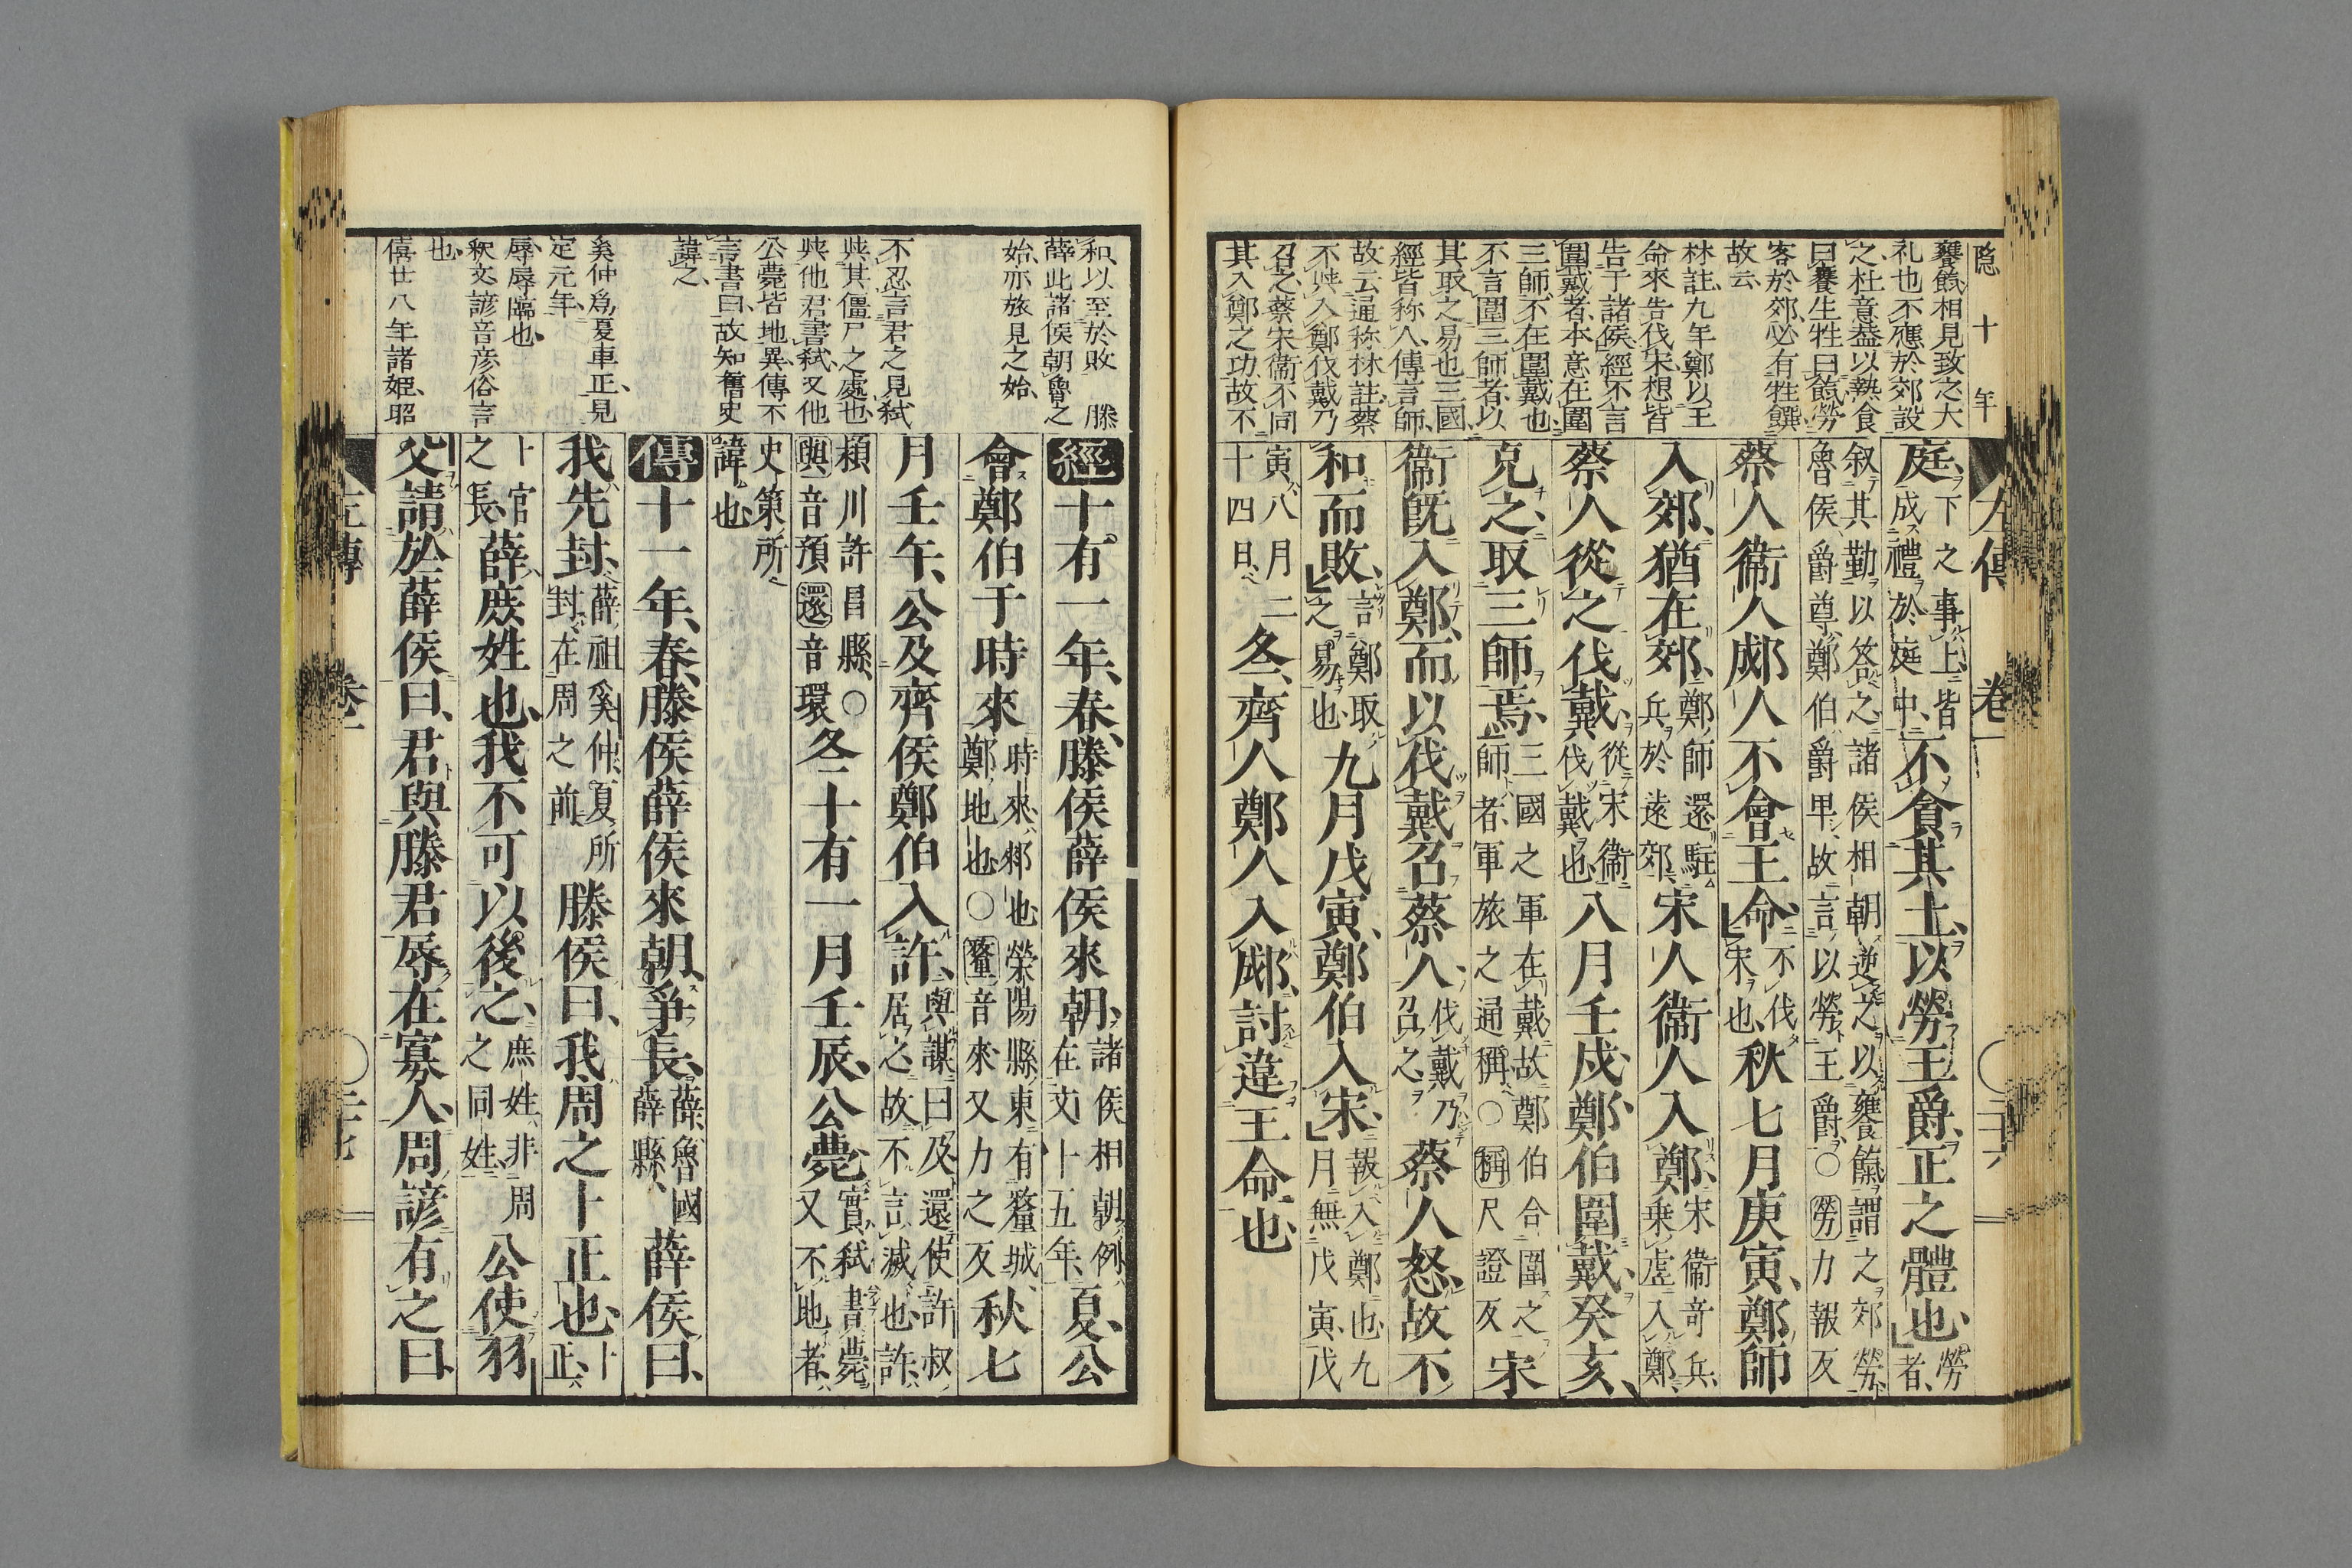 隐十年
左傳 卷一 二十六
饔餼相見致之大
礼也不應於郊設
之杜意葢以熟食
曰饔生牲曰餼勞
客於郊必有牲饌
故云
林註九年鄭以王
命來告伐宋想皆
告于諸侯經不言
圍戴者本意在圍
三師不在圍戴也
不言圍三師者以
其取之易也三國
經皆称人傳言師
故云通称林註蔡
不与入鄭伐戴乃
召之蔡宋衞不同
其入鄭之功故不
庭下之事上皆成禮於庭中不貪其土以勞王爵正之體也勞者
叙其勤以答之諸侯相朝逆之以饔餼謂之郊勞
魯侯爵尊鄭伯爵卑故言以勞王爵○勞力報反
蔡人衞人郕人不會王命不伐宋也秋七月庚寅鄭師
入郊猶在郊鄭師還駐兵於遠郊宋人衞人入鄭宋衞奇兵乗虗入鄭
蔡人從之伐戴從宋衞伐戴也八月壬戌鄭伯圍戴癸亥
克之取三師焉三國之軍在戴故鄭伯合圍之師者軍旅之通稱○稱尺證反宋
衞既入鄭而以伐戴召蔡人伐戴乃召之蔡人怒故不
和而敗言鄭取之易也九月戊寅鄭伯入宋報入鄭也九月無戊寅戊
寅八月二十四日冬齊人鄭人入郕討違王命也
和以至於敗 滕
薛此諸侯朝魯之
始亦旅見之始
不忍言君之見弒
与其僵尸之處也
与他君書弒又他
公薨皆地異傳不
言書曰故知舊史
諱之
奚仲爲夏車正見
定元年
辱辱臨也
釈文諺音彦俗言
也
僖廿八年諸姫昭
經十有一年春滕侯薛侯來朝諸侯相朝例在文十五年夏公
會鄭伯于時來時來郲也滎陽縣東有釐城鄭地也○釐音來又力之反秋七
月壬午公及齊侯鄭伯入許與謀曰及還使許叔居之故不言滅也許
潁川許昌縣○與音預還音環冬十有一月壬辰公薨實弒書薨又不地者
史策所諱也
傳十一年春滕侯薛侯來朝爭長薛魯國薛縣薛侯曰
我先封薛祖奚仲夏所封在周之前滕侯曰我周之卜正也卜正
卜官之長薛庶姓也我不可以後之庶姓非周之同姓公使羽
父請於薛侯曰君與滕君辱在寡人周諺有之曰
左傳 卷一 二十七